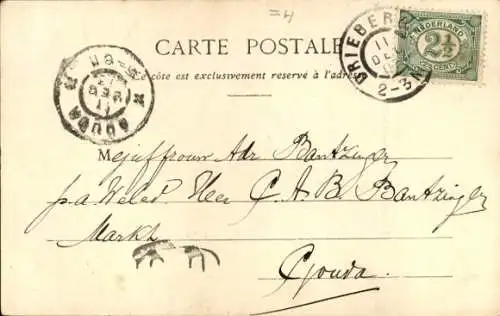 =4
CARTE POSTALE
Ce côté est exclusivement reservé à l'adresse
DRIEBERGEN
11 DEC
2-3N
NEDERLAND
2½
CENT
GOUDA
11 DEC
Mejuffrouw Adr Bantzinger
p.a Weled Heer C. A. B. Bantzinger
Markt
Gouda